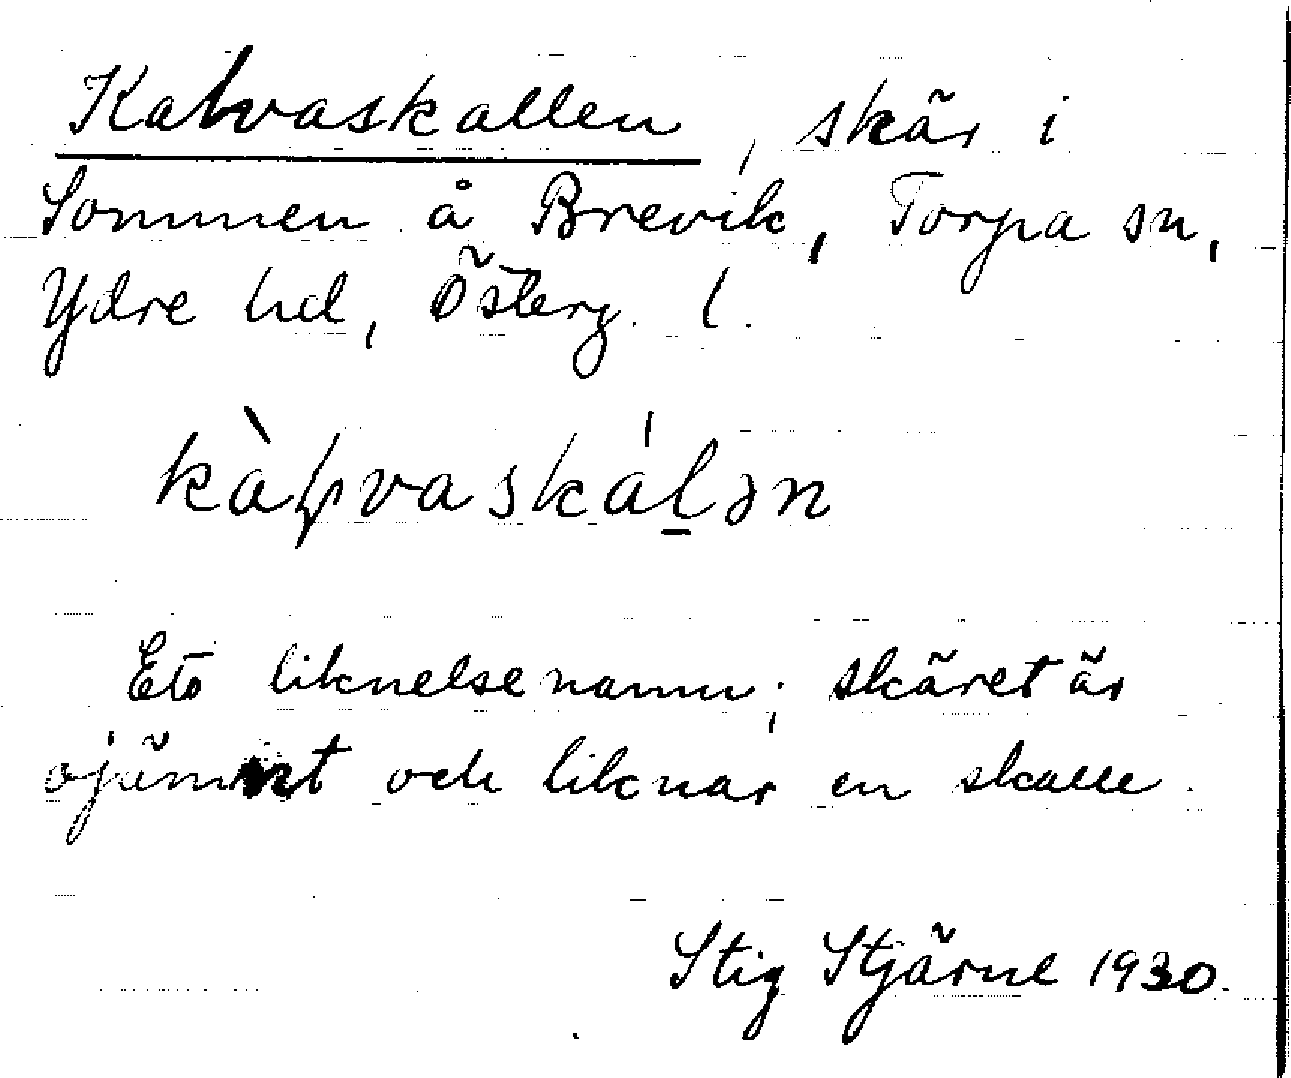 Kalvaskallen, skär i
Sommen å Brevik, Torpa sn,
Ydre hd, Österg. l.
kàl̥vaskál̲ən
Ett liknelsenamn; skäret är
ojämnt och liknar en skalle.
Stig Stjärne 1930.